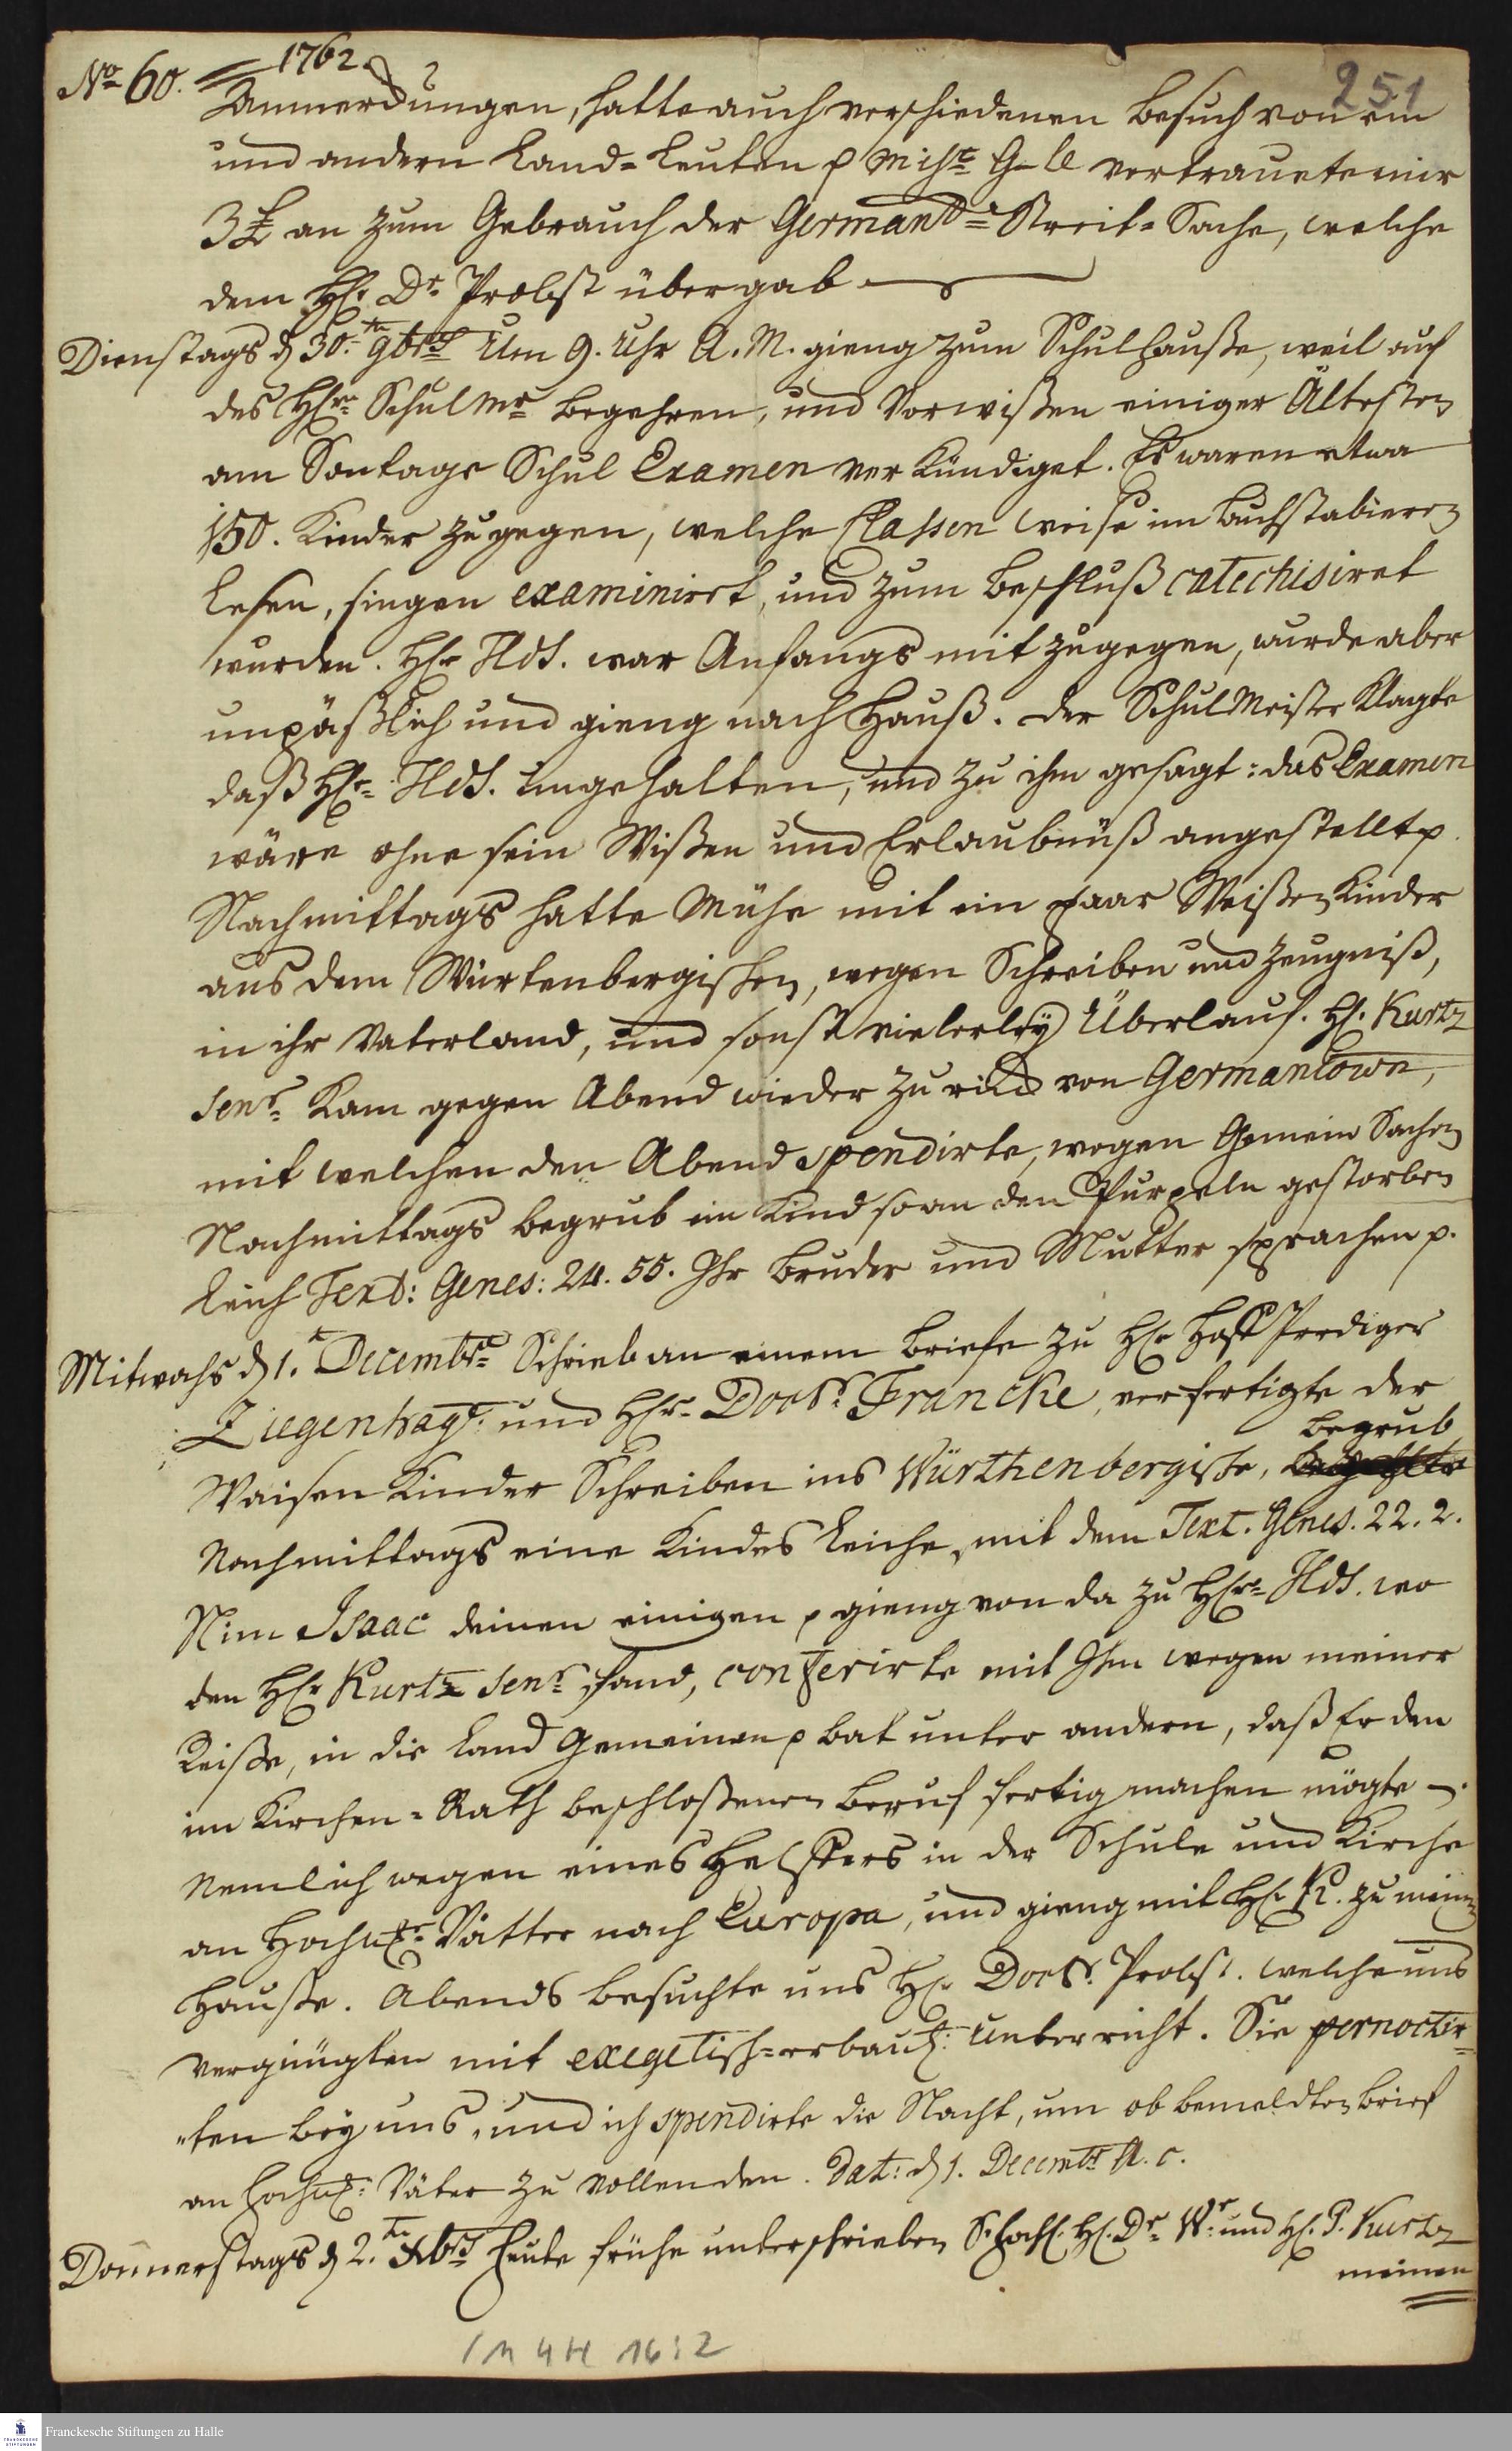 No 60. 1762. 251
Anmerckungen, hatte auch verschiedenen Besuch von ein
und andern Land-Leuten p Mistr G-ll vertrauete mir
3 £ an zum Gebrauch der Germant. Streit-Sache, welche
dem Hr. Dr. Probst übergab
Dienstags d 30.ten 9br Um 9. Uhr A. M. gieng zum Schulhauße, weil auf
des Hrn Schulmr Begehren, und Vorwißen einiger Ältesten
am Sontage Schul Examen verkündiget. Es waren etwa
150. Kinder zugegen, welche Classen weise im Buchstabieren
Lesen, singen examinirt, und zum Beschluß catechisiret
wurden. Hr Hds. war Anfangs mit zugegen, wurde aber
unpäßlich und gieng nach Hauß. Der SchulMeister klagte
daß Hr. Hds. ungehalten, und zu ihm gesagt: das Examen
wäre ohne sein Wißen und Erlaubnüß angestellt p.
Nachmittags hatte Mühe mit ein paar Weißen Kinder
aus dem Würtenbergischen, wegen Schreiben und Zeugniß,
in ihr Vaterland, und sonst vielerley Überlauf. H. Kurtz
Senr. kam gegen Abend wieder zurück von Germantown,
mit welchen den Abend spendirte, wegen Gemein Sachen
Nachmittags begrub ein Kind so an den Purpeln gestorben
Leich Text: Genes: 24. 55. Ihr Bruder und Mutter sprachen p.
Mitwochs d 1. Decembr Schrieb an einem Briefe zu Hr Hoff Prediger
Ziegenhag. und Hr. Doctr. Francke, verfertigte der
Waisen Kinder Schreiben ins Würthenbergische, begrub
Nachmittags eine Kindes Leiche, mit dem Text. Genes. 22. 2.
Nim Isaac deinen einigen p gieng von da zu Hr. Hds. wo
den Hr Kurtz Senr. fand, conferirte mit Ihm wegen meiner
Reiße, in die Land Gemeinen p bat unter andern, daß Er den
im Kirchen-Rath beschloßenen Beruf fertig machen mögte.
Nemlich wegen eines Helffers in der Schule und Kirche
an Hochw. Vätter nach Europa, und gieng mit Hr. K. zu meinem
Hauße. Abends besuchte uns Hr Doctr. Probst. welche uns
vergnügten mit exegetisch-erbaul. Unterricht. Sie pernoctir-
ten bey uns, und ich spendirte die Nacht, um obbemeldten Brief
an Hochw. Väter zu vollenden. Dat: d 1. Decembr A. c.
Donnerstags d 2.ten Xbr Heute frühe unterschrieben H. Dr. W. und H. P. Kurtz
meinen
1 M 4 H 16 : 2
Franckesche Stiftungen zu Halle